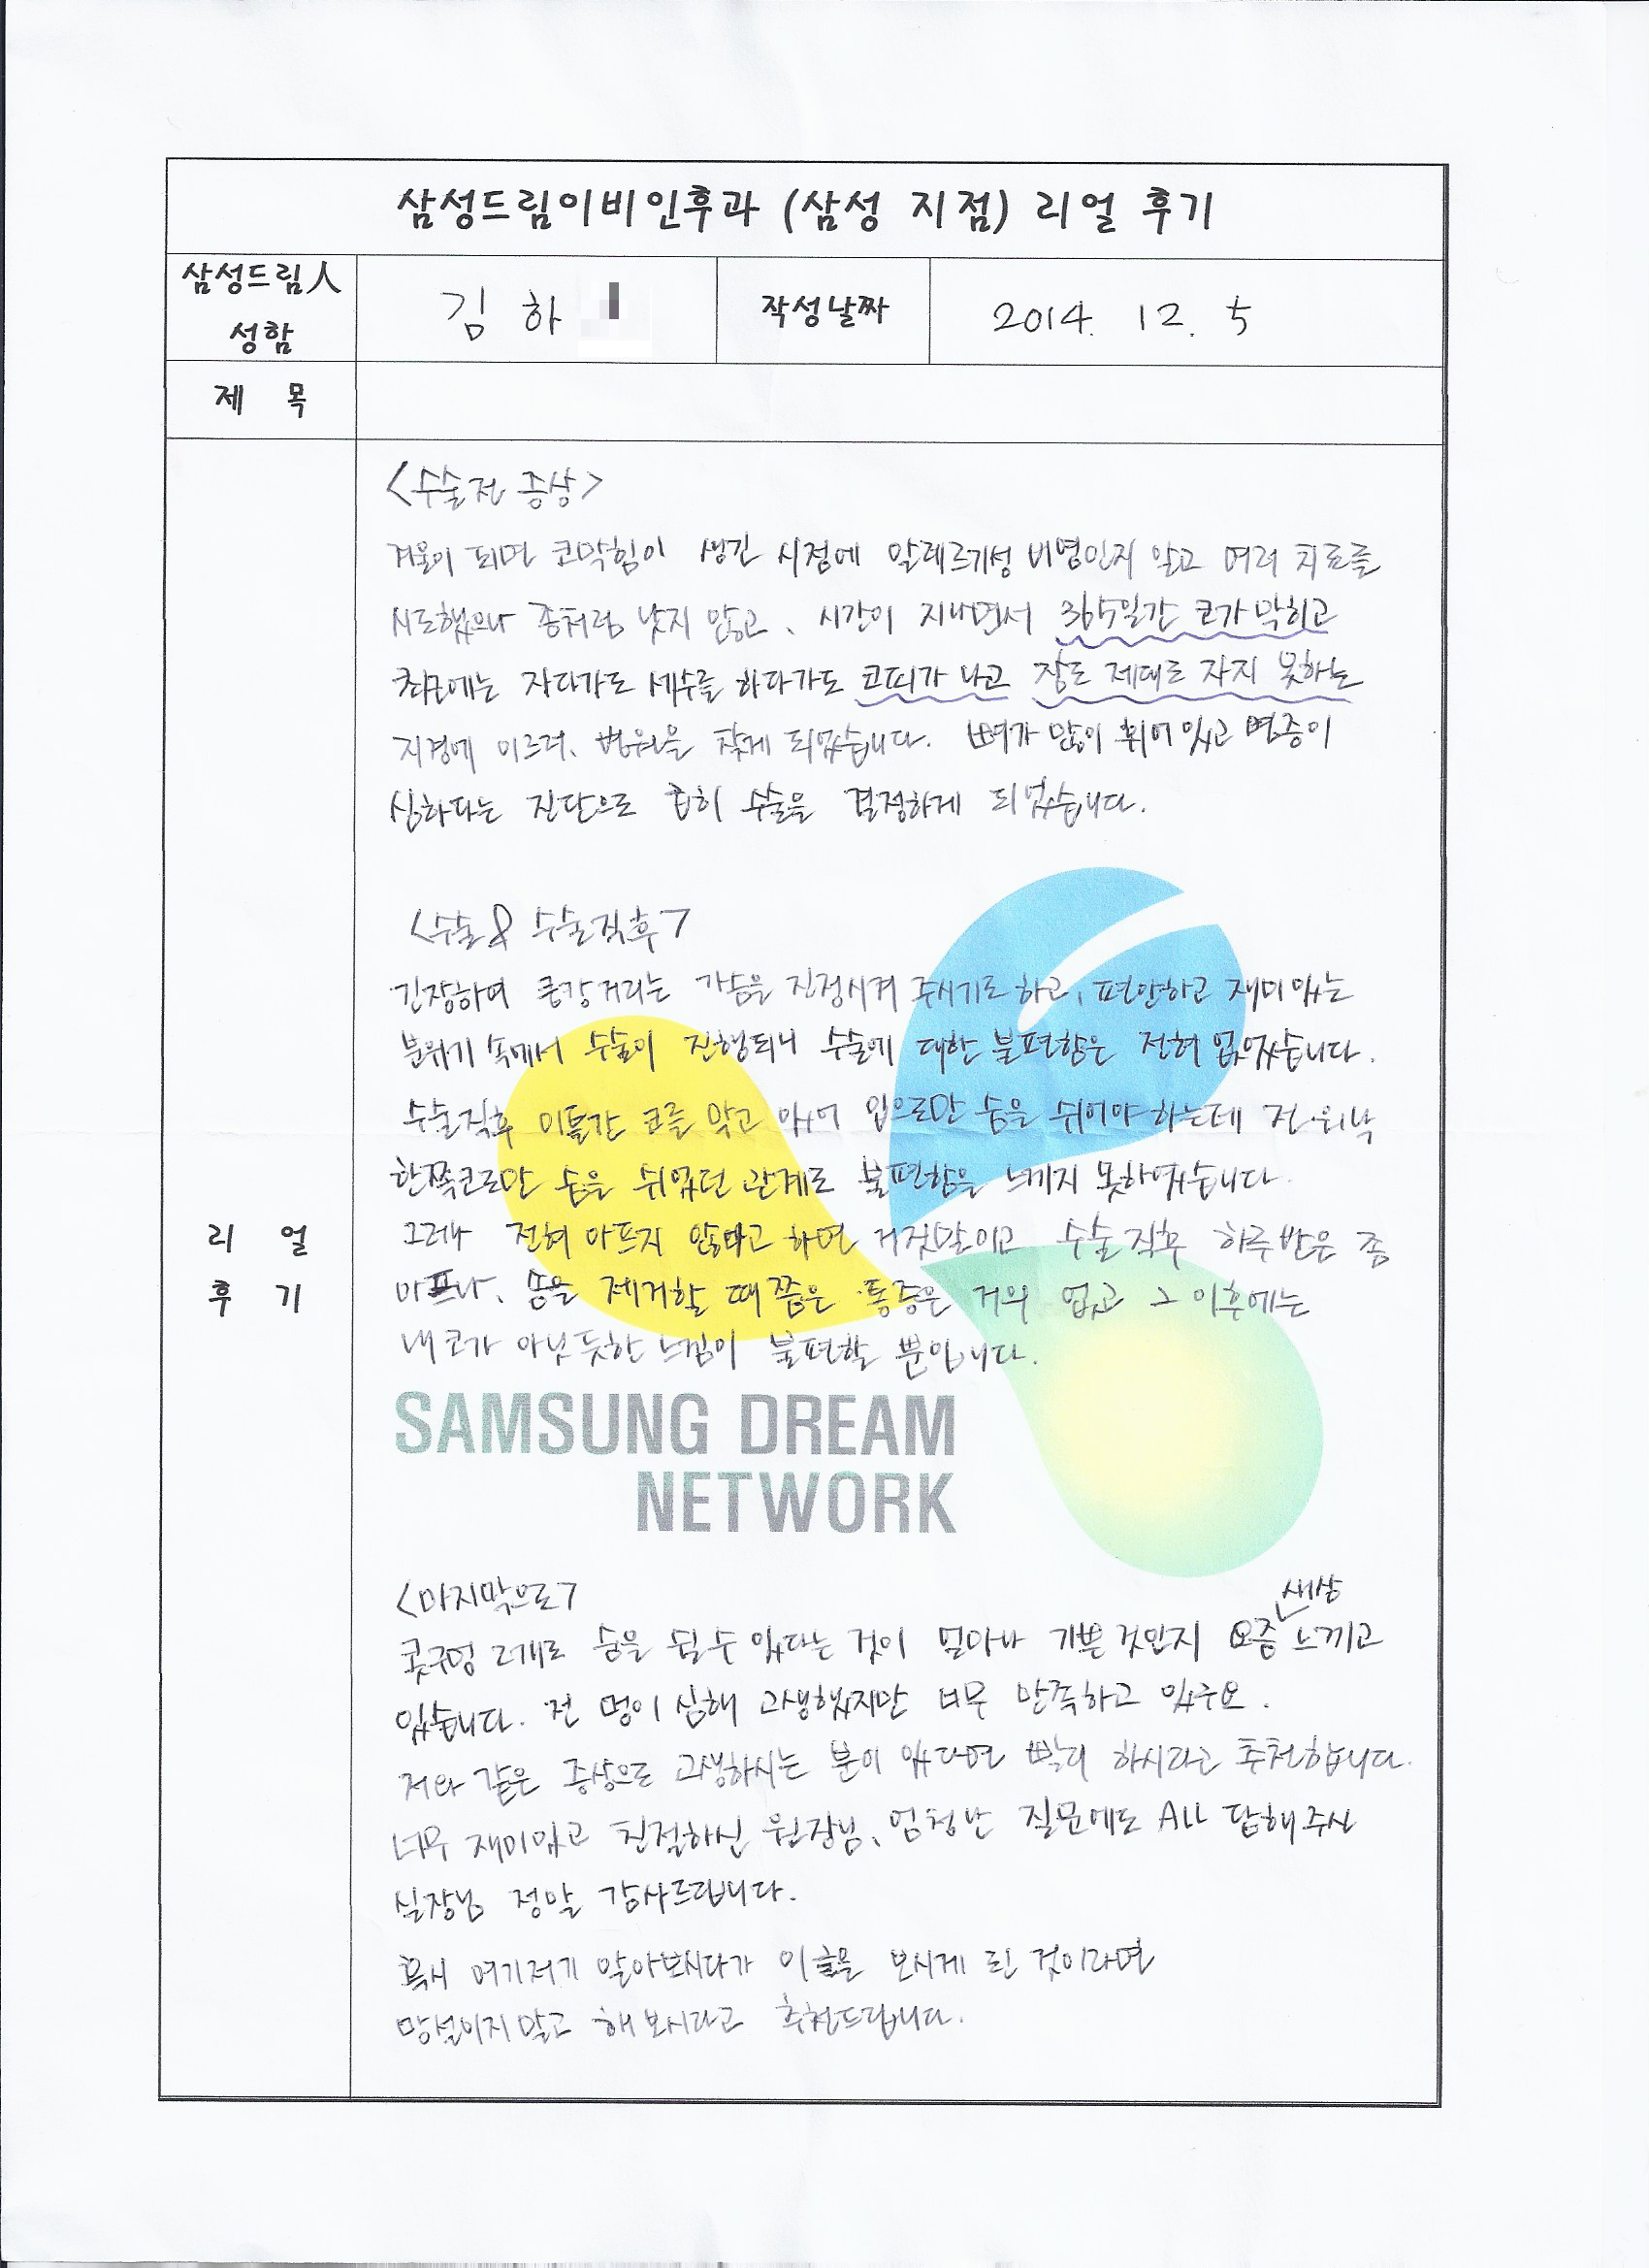 삼성드림이비인후과 (삼성 지점) 리얼 후기
삼성드림人
성함
김 하
작성날짜
2014. 12. 5
제 목
<수술전 증상>
겨울이 되면 코막힘이 생긴 시점에 알레르기성 비염인지 알고 여러 치료를
시도했으나 좀처럼 낫지 않고, 시간이 지나면서 365일간 코가 막히고
최근에는 자다가도 세수를 하다가도 코피가 나고 잠도 제대로 자지 못하는
지경에 이르러, 병원을 찾게 되었습니다. 뼈가 많이 휘어 있고 염증이
심하다는 진단으로 급히 수술을 결정하게 되었습니다.
<수술& 수술직후>
긴장하여 쿵쾅거리는 가슴을 진정시켜 주시기도 하고, 편안하고 재미있는
분위기 속에서 수술이 진행되니 수술에 대한 불편함은 전혀 없었습니다.
수술직후 이틀간 코를 막고 있어 입으로만 숨을 쉬어야 하는데 전 워낙
한쪽코로만 숨을 쉬었던 관계로 불편함을 느끼지 못하였습니다.
그러나 전혀 아프지 않다고 하면 거짓말이고 수술직후 하루 반은 좀
아프나, 솜을 제거할 때 쯤은 통증은 거의 없고 그 이후에는
내 코가 아닌듯한 느낌이 불편할 뿐입니다.
리 얼
후 기
SAMSUNG DREAM
NETWORK
<마지막으로>
콧구멍 2개로 숨을 쉴 수 있다는 것이 얼마나 기쁜 것인지 요즘 새삼 느끼고
있습니다. 전 멍이 심해 고생했지만 너무 만족하고 있구요.
저와 같은 증상으로 고생하시는 분이 있다면 빨리 하시라고 추천합니다.
너무 재미있고 친절하신 원장님, 엄청난 질문에도 ALL 답해주신
실장님 정말 감사드립니다.
혹시 여기저기 알아보시다가 이 글을 보시게 된 것이라면
망설이지 말고 해 보시라고 추천드립니다.